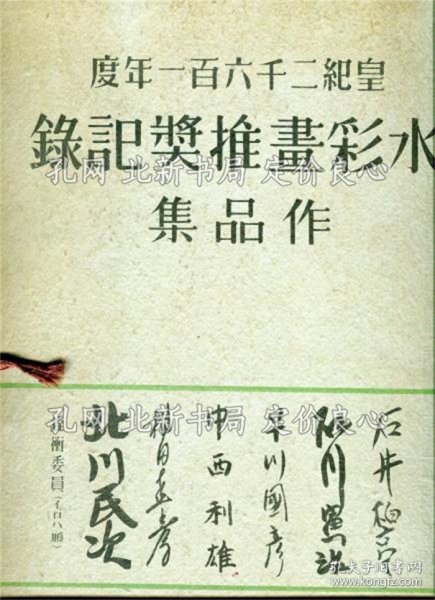 皇紀二千六百一年度
水彩畫推奬記錄
作品集
石井柏亭
石川寅治
早川國彥
中西利雄
相田直彥
北川民次
銓衡委員(イロハ順)
孔网 北新书局 定价良心
孔网 北新书局 定价良心
孔夫子旧书网
www.kongfz.com